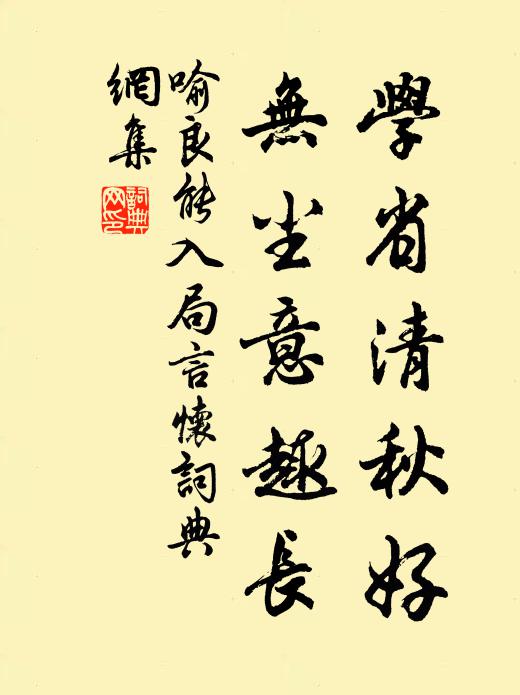 學省清秋好
無尘意趣長
喻良能入局言懷詞典
網集
詞典
网印